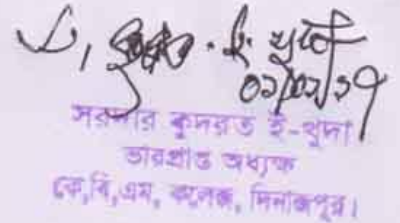 ০১/০১/১৭
সরদার কুদরত ই-খুদা
ভারপ্রাপ্ত অধ্যক্ষ
কে,বি,এম, কলেজ, দিনাজপুর।